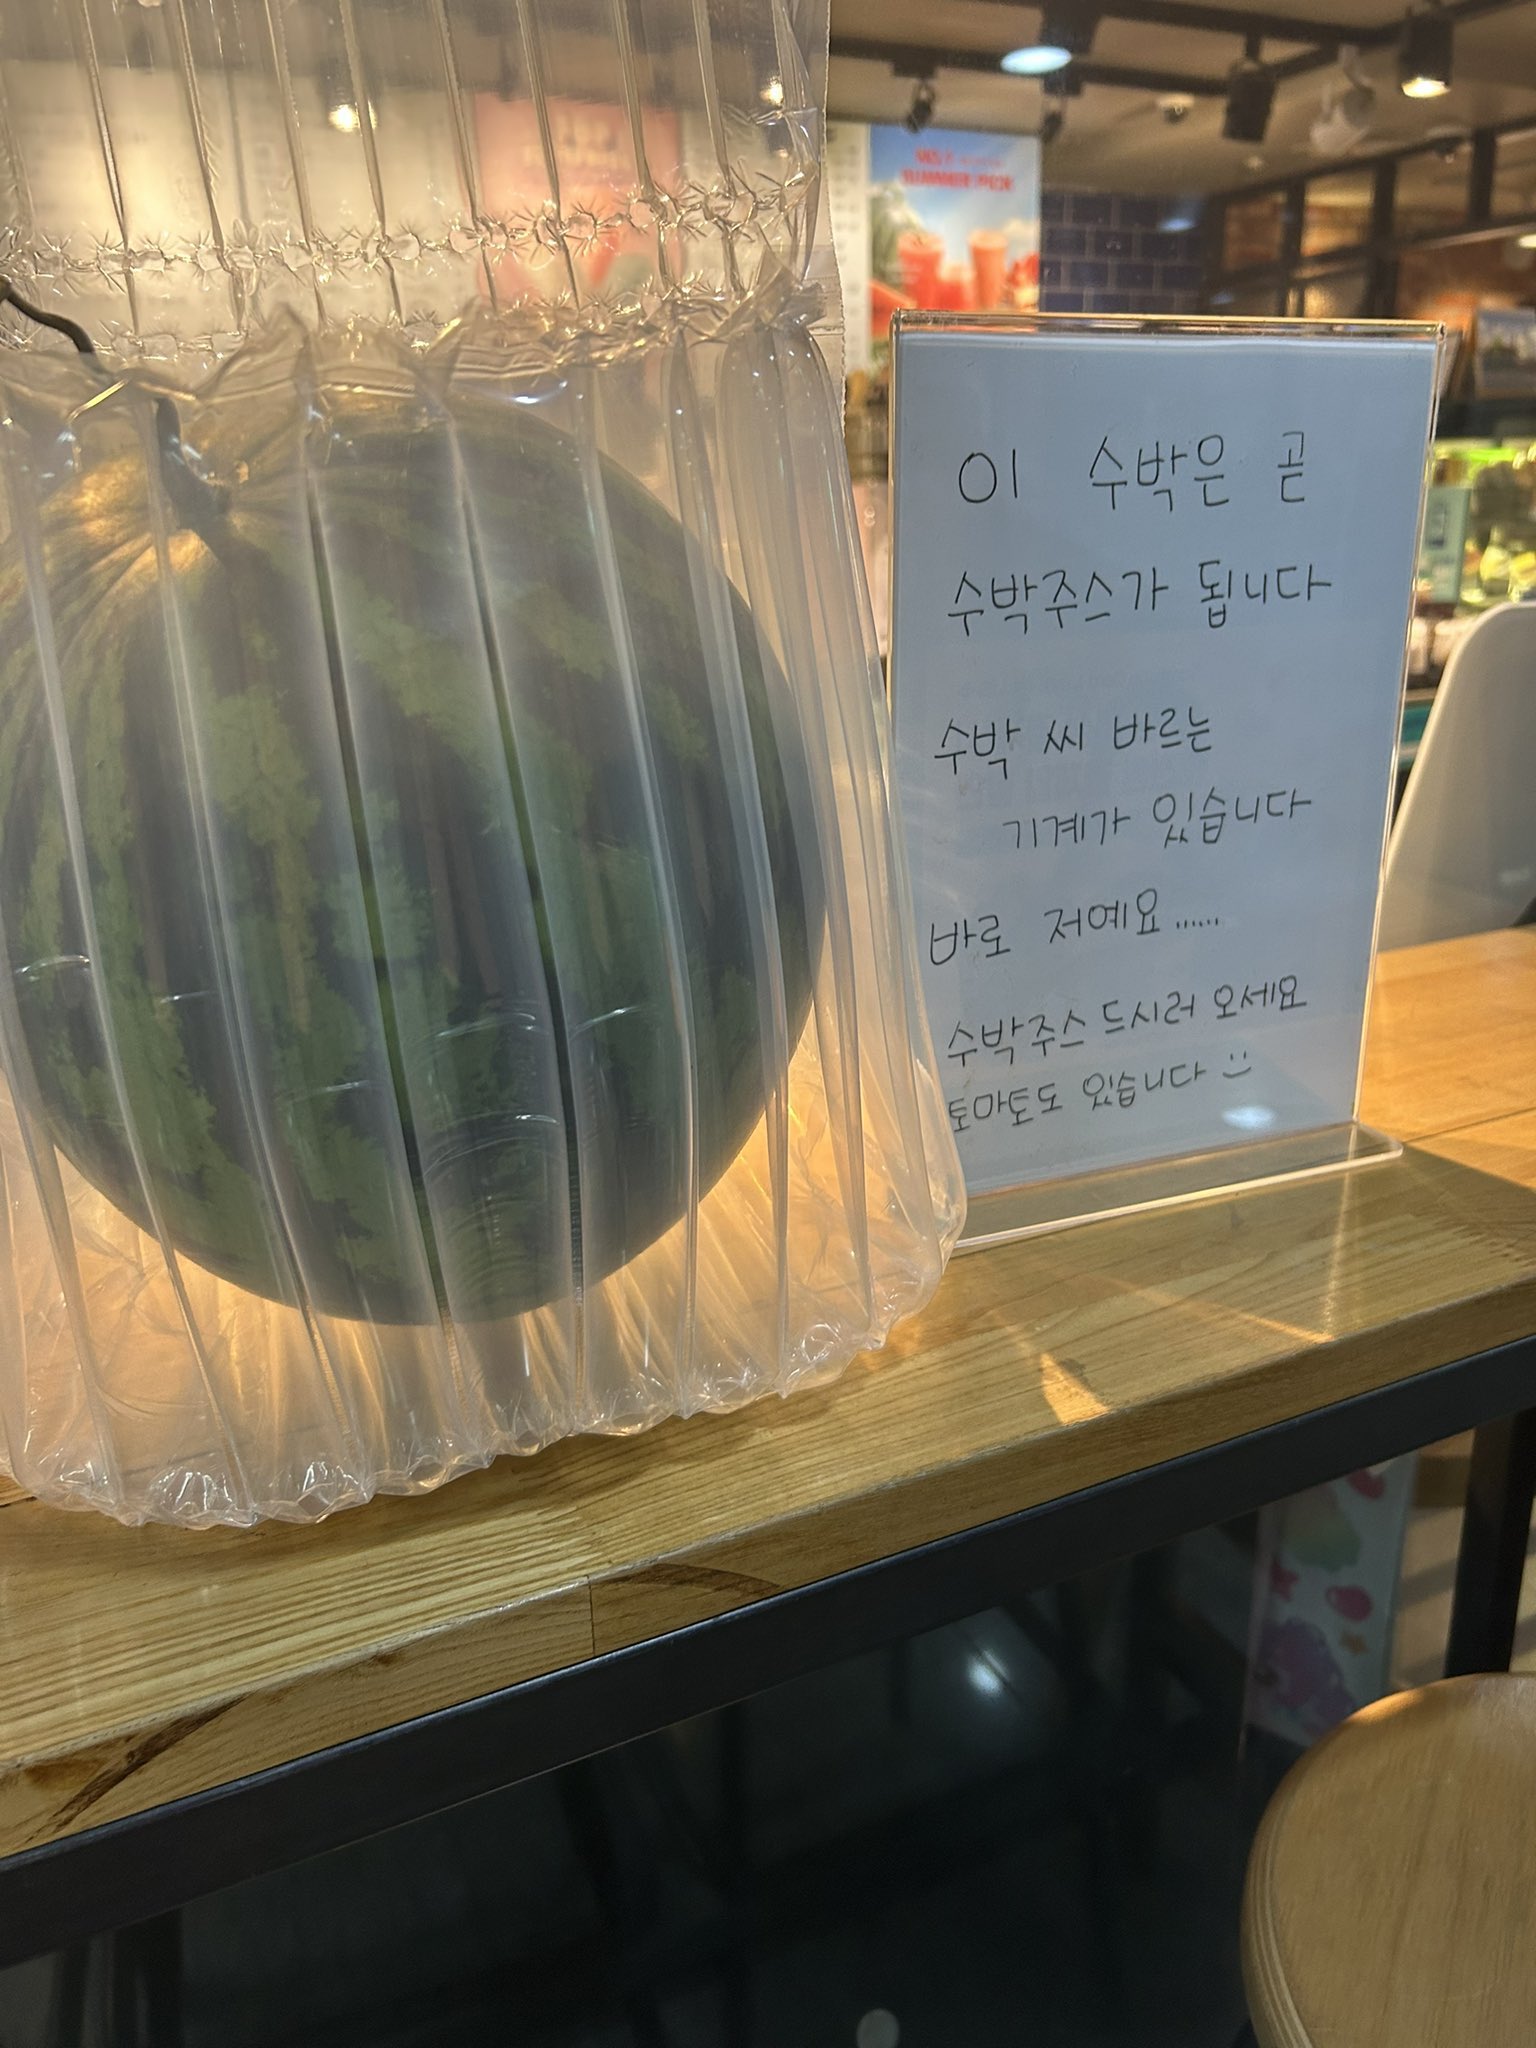 SUMMER PICK
이 수박은 곧
수박주스가 됩니다
수박 씨 바르는
기계가 있습니다
바로 저예요......
수박주스 드시러 오세요
토마토도 있습니다 :)